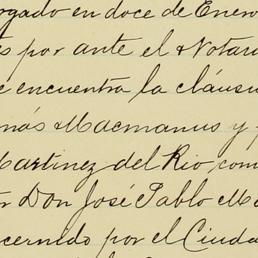 rgado en doce de Enero
s por ante el Notar
e encuentra la cláusu
más Macmanus y
Martinez del Rio, com
r Don José Pablo Ma
cernido por el Ciuda